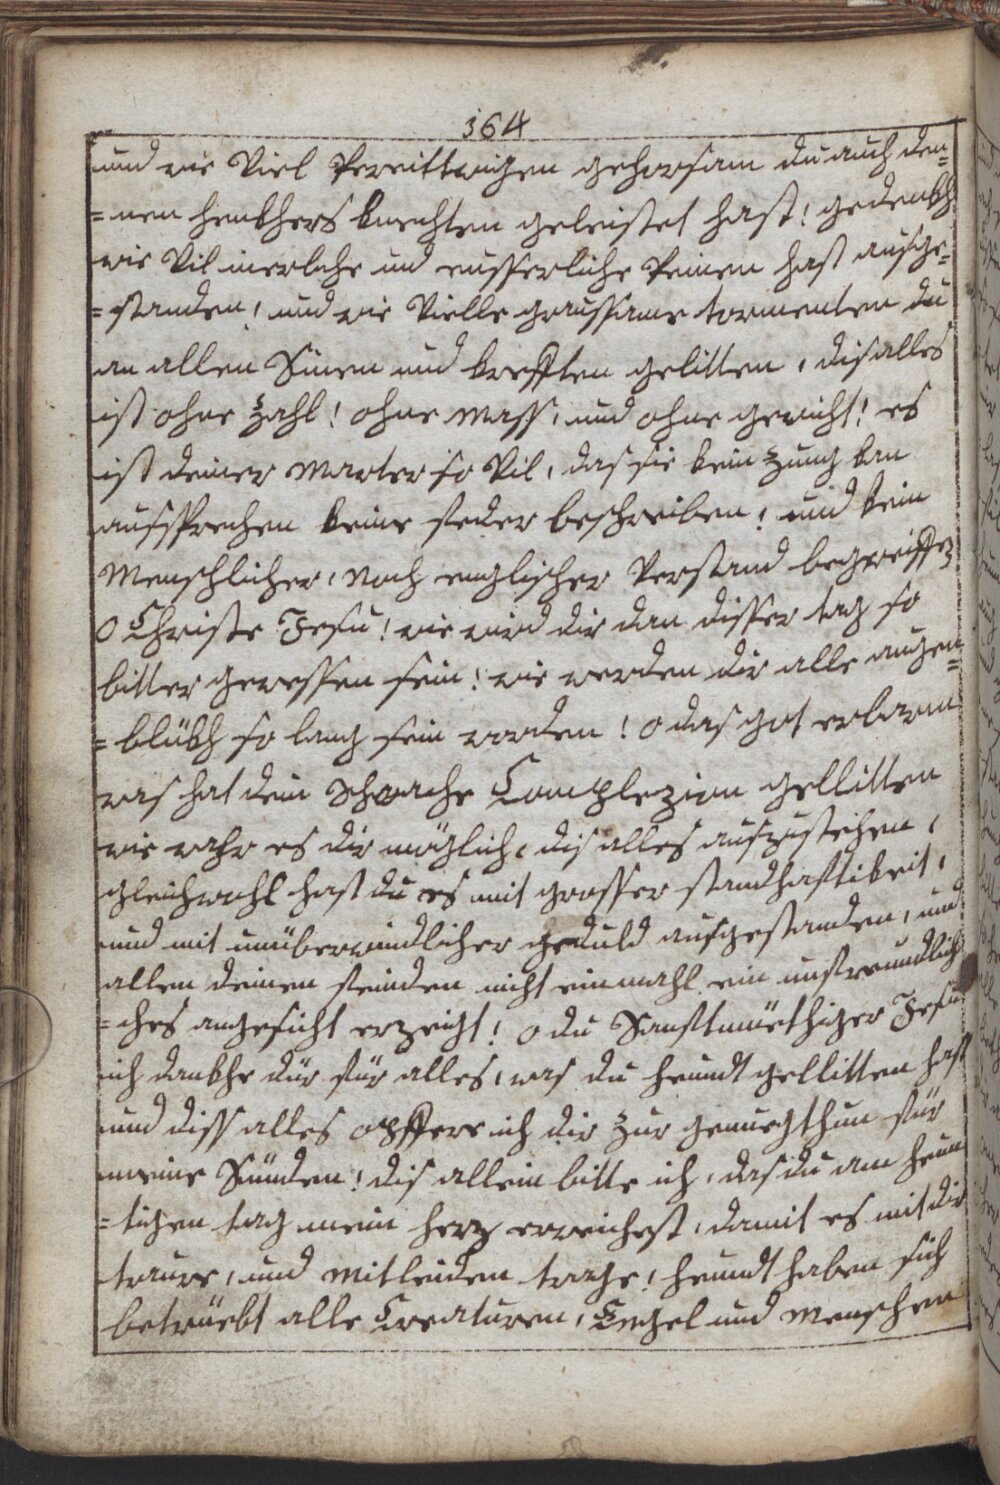 364
und wie Viel Pereittwigen gehorsam du auch den=
=nen henkhers knechten geleistet hast! gedenkh
wie Vil inerliche und eusserliche Peinen hast ausge=
=standen! und wie Vielle graussame tormenten du
an allen Sinen und krefften gelitten, dis alles
ist ohne zahl! ohne mass, und ohne gewicht! es
ist deiner marter so Vil, das sie kein zung kan
aussprechen keine feder beschreiben, und kein
Menschlicher, noch englischer Verstand begreiffen
O Christe Jesu! wie wird dir dan disser tag so
bitter gewessen sein! wie werden dir alle augen=
=blükh so lang sein worden! O das got erbarm
was hat dein schwache Complezion gellitten
wie wahr es dir möglich, dis alles auszustehen,
gleichwohl hast du es mit grosser standhafftikeit,
und mit unüberwindlicher geduld ausgestanden, und
allen deinen feinden nicht einmahl ein unfreundlich
=ches angesicht erzeigt! O du Sanftmüethiger Jesu
ich dankhe dür für alles, was du heundt gellitten hast
und diss alles opffere ich dir zur genuegthun für
meine Sünden! dis allein bitte ich, das du am heun
=tigen tag mein herz erweichest, damit es mit dir
traure, und mitleiden trage! heundt haben sich
betrüebt alle Creaturen, Engel und Menschen